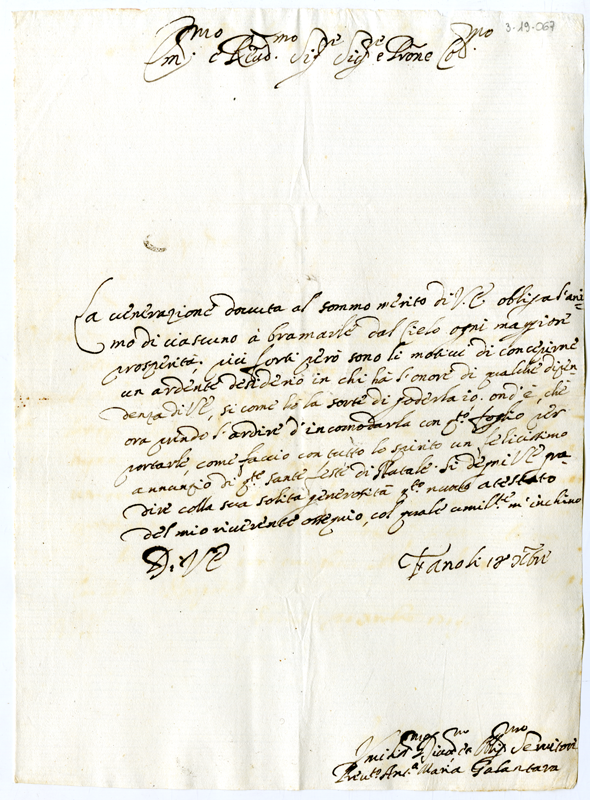 3-19-067
Em.mo e Rev.mo Sig.re Sig.re e Prone Col.mo
La venerazione dovuta al sommo merito di V.E. obliga l'ani=
mo di ciascuno à bramarle dal Cielo ogni maggiore
prosperità. più forti però sono li motivi di concepirne
un ardente desiderio in chi hà l'onore di qualche dipen
denza di V.E., si come hò la sorte di goderla io. ond'è, che
ora prendo l'ardire d'incomodarla con q.to foglio per
portarle, come faccio con tutto lo spirito un felicissimo
annunzio di q.te sante feste di Natale. Si degni V.E. gra=
dire colla sua solita generosità q.to nuovo atestato
del mio riverente ossequio, col quale umil.te m'inchino
D. V.E.
Fano li 18 Xbre
Umilis.mo Obblig.mo Servitore
Ant.a Maria Galantara